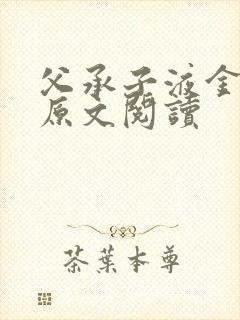 父承子液全
原文閱讀
茶葉本尊